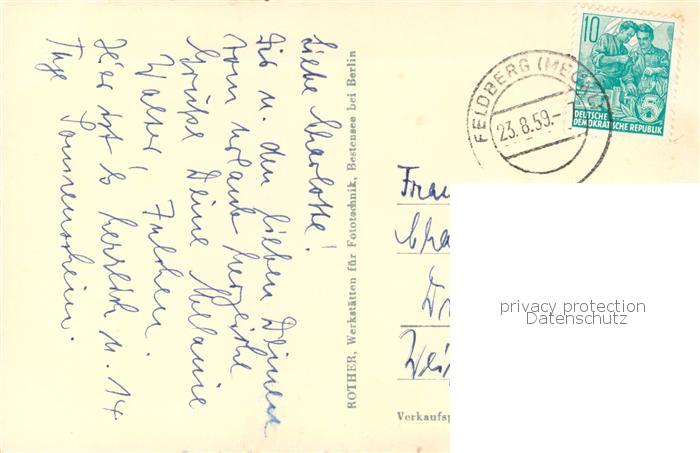 Liebe Charlotte!
Dir u. den lieben Deinen
vom Urlaub herzliche
Grüße Deine Melanie
Walter,
Hier ist es herrlich u. 14
Tage Sonnenschein.
ROTHER, Werkstätten für Fototechnik, Bestensee bei Berlin
FELDBERG (MECKL)
23.8.59.-
10
DEUTSCHE
DEMOKRATISCHE REPUBLIK
5
Frau
Cha
Dr
Wei
Verkaufsp
privacy protection
Datenschutz